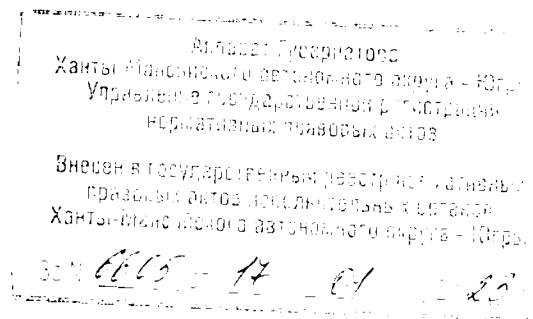 Аппарат Губернатора
Ханты-Мансийского автономного округа – Югры
Управление государственной регистрации
нормативных правовых актов
Внесен в государственный реестр нормативных
правовых актов исполнительных органов
Ханты-Мансийского автономного округа – Югры
За № 17 01